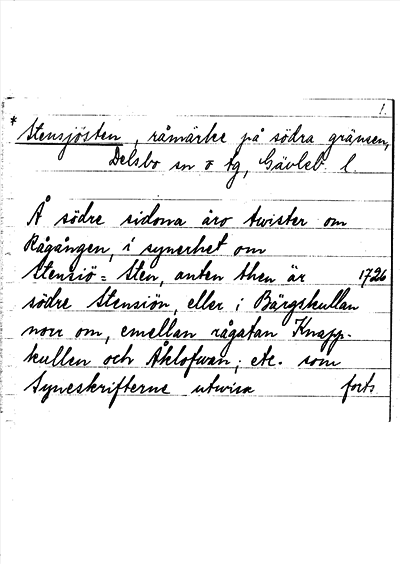 1.
* Stensjösten, råmärke på södra gränsen,
Delsbo sn o tg, Gävleb. l.
Å södre sidona äro twister om
Rågången, i synerhet om
Stensiö = Sten, anten then är 1726
södre Stensiön, eller i Bärgskullan
norr om, emellan rågatan Knapp-
kullen och Åklofwan; etc. som
Syneskrifterne utwisa forts